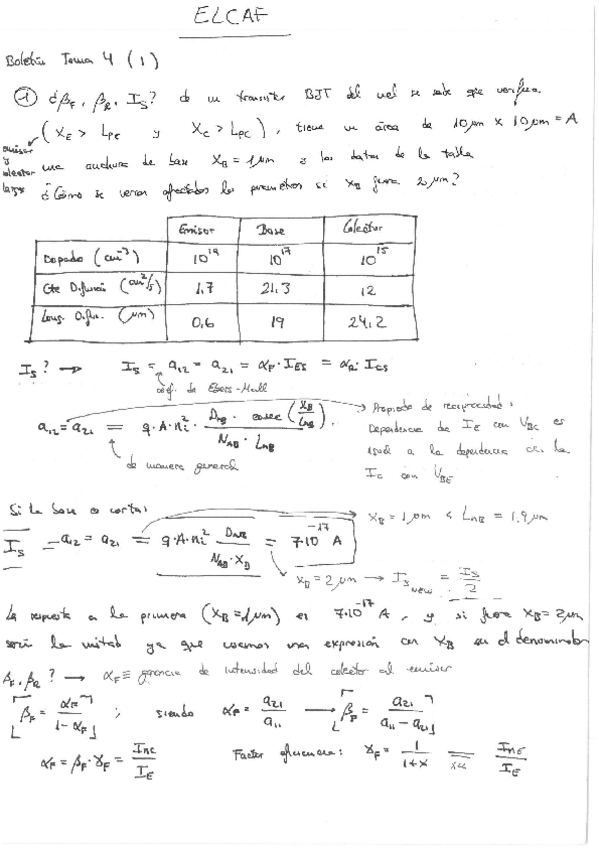 ELCAF
Boletín Tema 4 (1)
① ¿βF, βR, IS? de un transistor BJT del cual se sabe que verifica
(XE > LPE y XC > LPC), tiene un área de 10 μm x 10 μm = A
emisor y colector largos
una anchura de base XB = 1 μm y los datos de la tabla
¿Cómo se verían afectados los parámetros si XB fuera 2 μm?
Emisor Base Colector
Dopado (cm⁻³) 10¹⁹ 10¹⁷ 10¹⁵
Cte Difusión (cm²/s) 1,7 21,3 12
Long. Difu. (μm) 0,6 19 24,2
IS? → IS = a12 = a21 = αF · IES = αR · ICS
coef. de Ebers-Moll
a12 = a21 = q·A·ni² · DnB · cosec (XB/LnB) / NAB · LnB
→ Propiedad de reciprocidad:
Dependencia de IE con VBC es
igual a la dependencia de la
IC con VBE
de manera general
Si la base es corta:
→ XB = 1 μm < LnB = 1,9 μm
IS = a12 = a21 = q·A·ni² DnB / NAB·XB = 7·10⁻¹⁷ A
XB = 2 μm → IS new = IS/2
La respuesta a la primera (XB = 1 μm) es 7·10⁻¹⁷ A, y si fuera XB = 2 μm
sería la mitad ya que usamos una expresión con XB en el denominador
βF, βR? → αF ≡ ganancia de intensidad del colector al emisor
βF = αF / 1 - αF ; siendo αF = a21 / a11 → βF = a21 / a11 - a21
αF = βF · γF = InC / IE Factor eficiencia: γF = 1 / 1+x = InE / IE